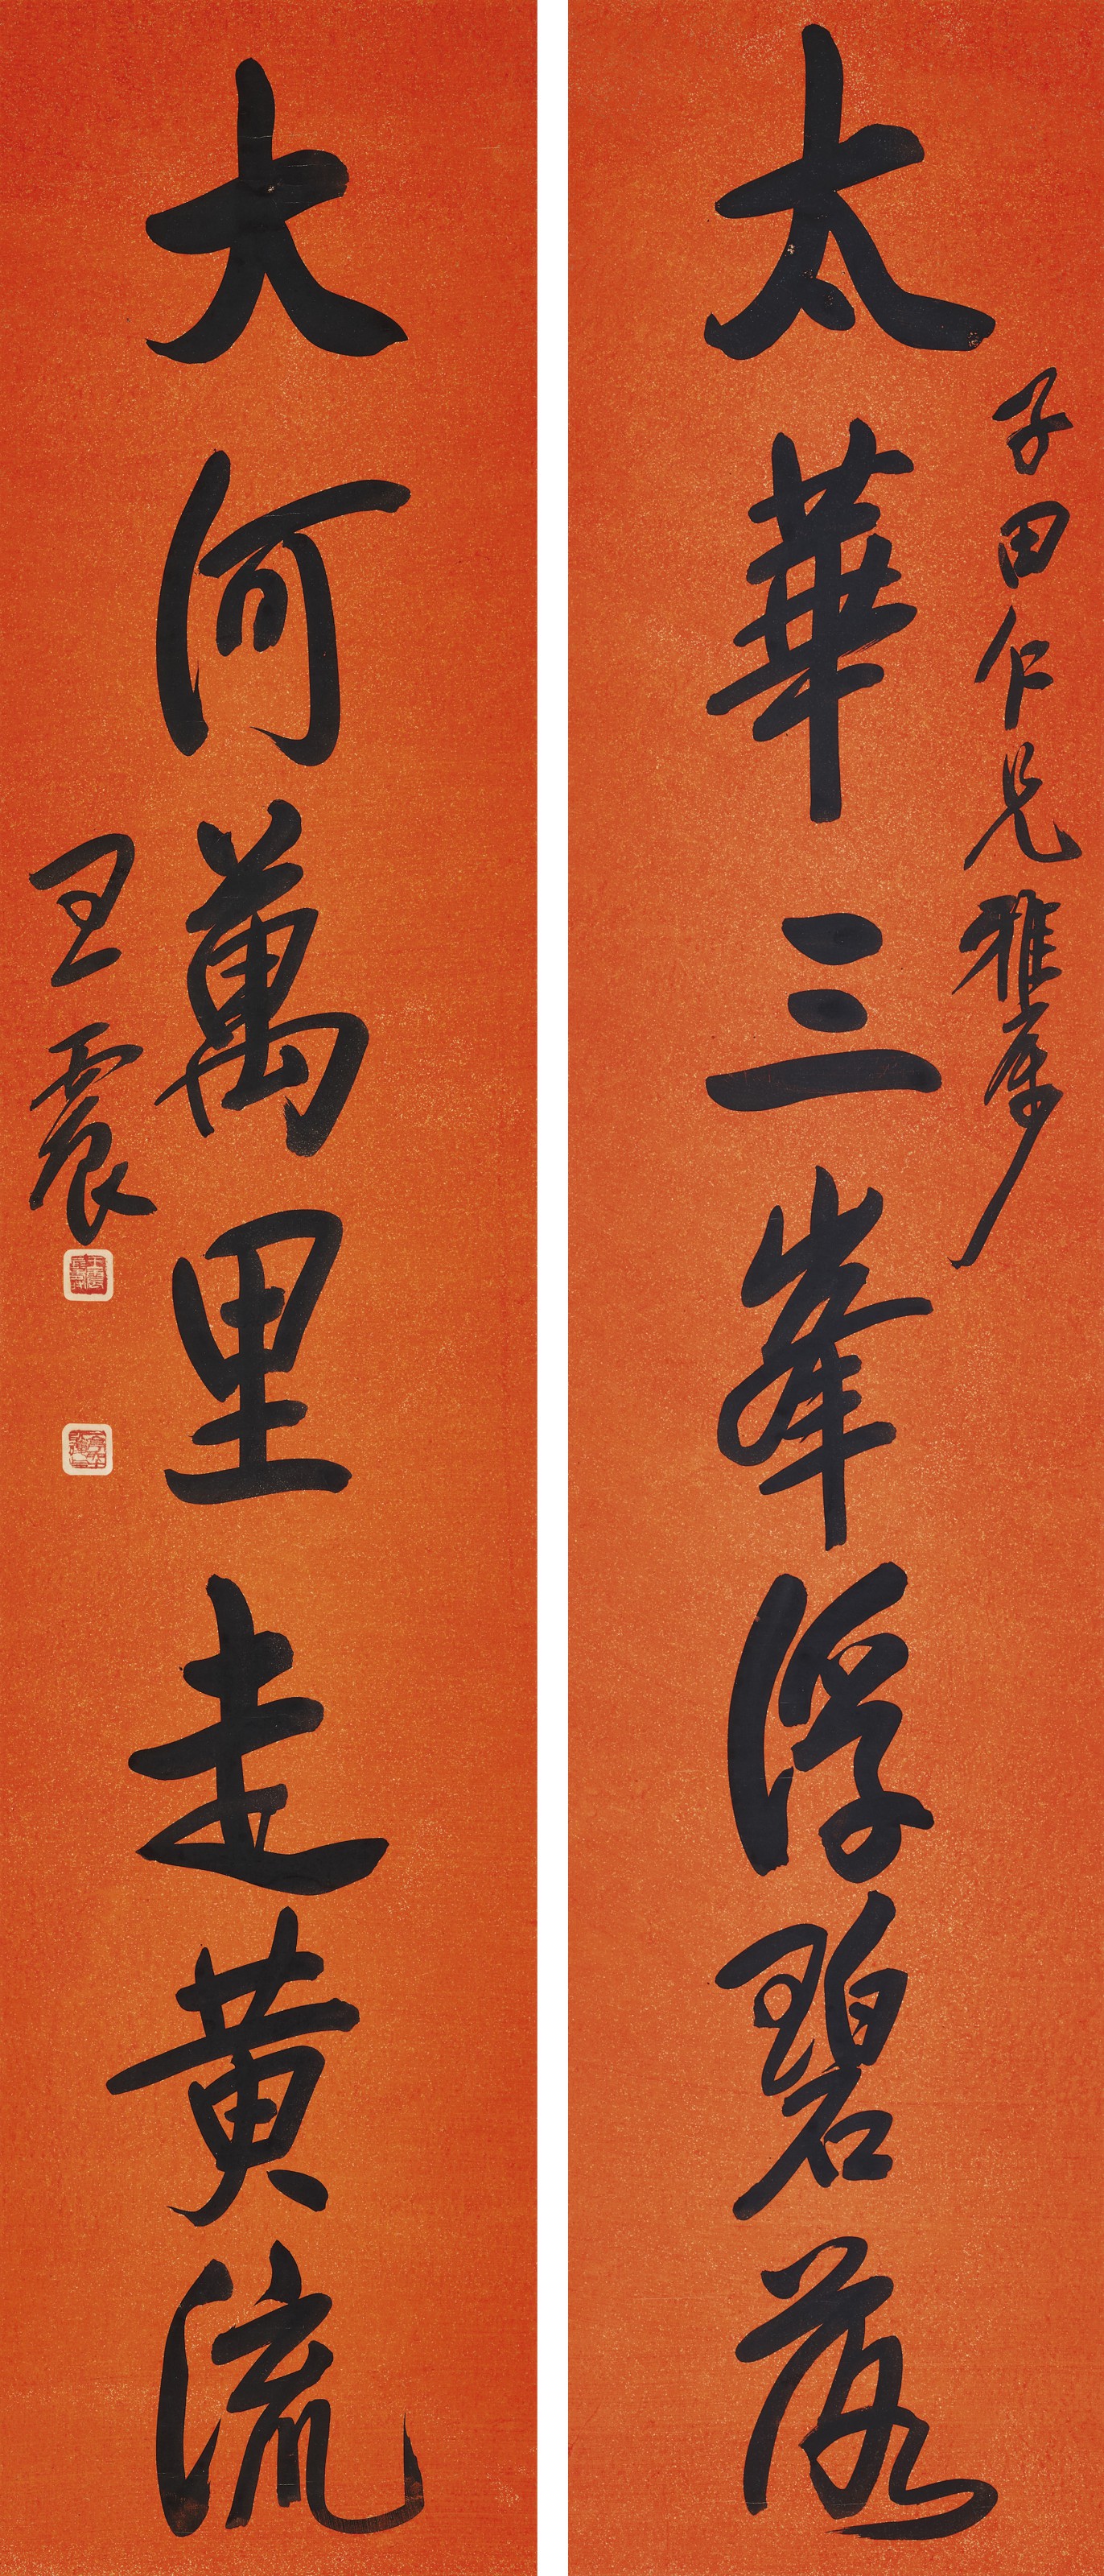 太華三峯浮碧落
子田仁兄雅屬
大河萬里走黃流
王震